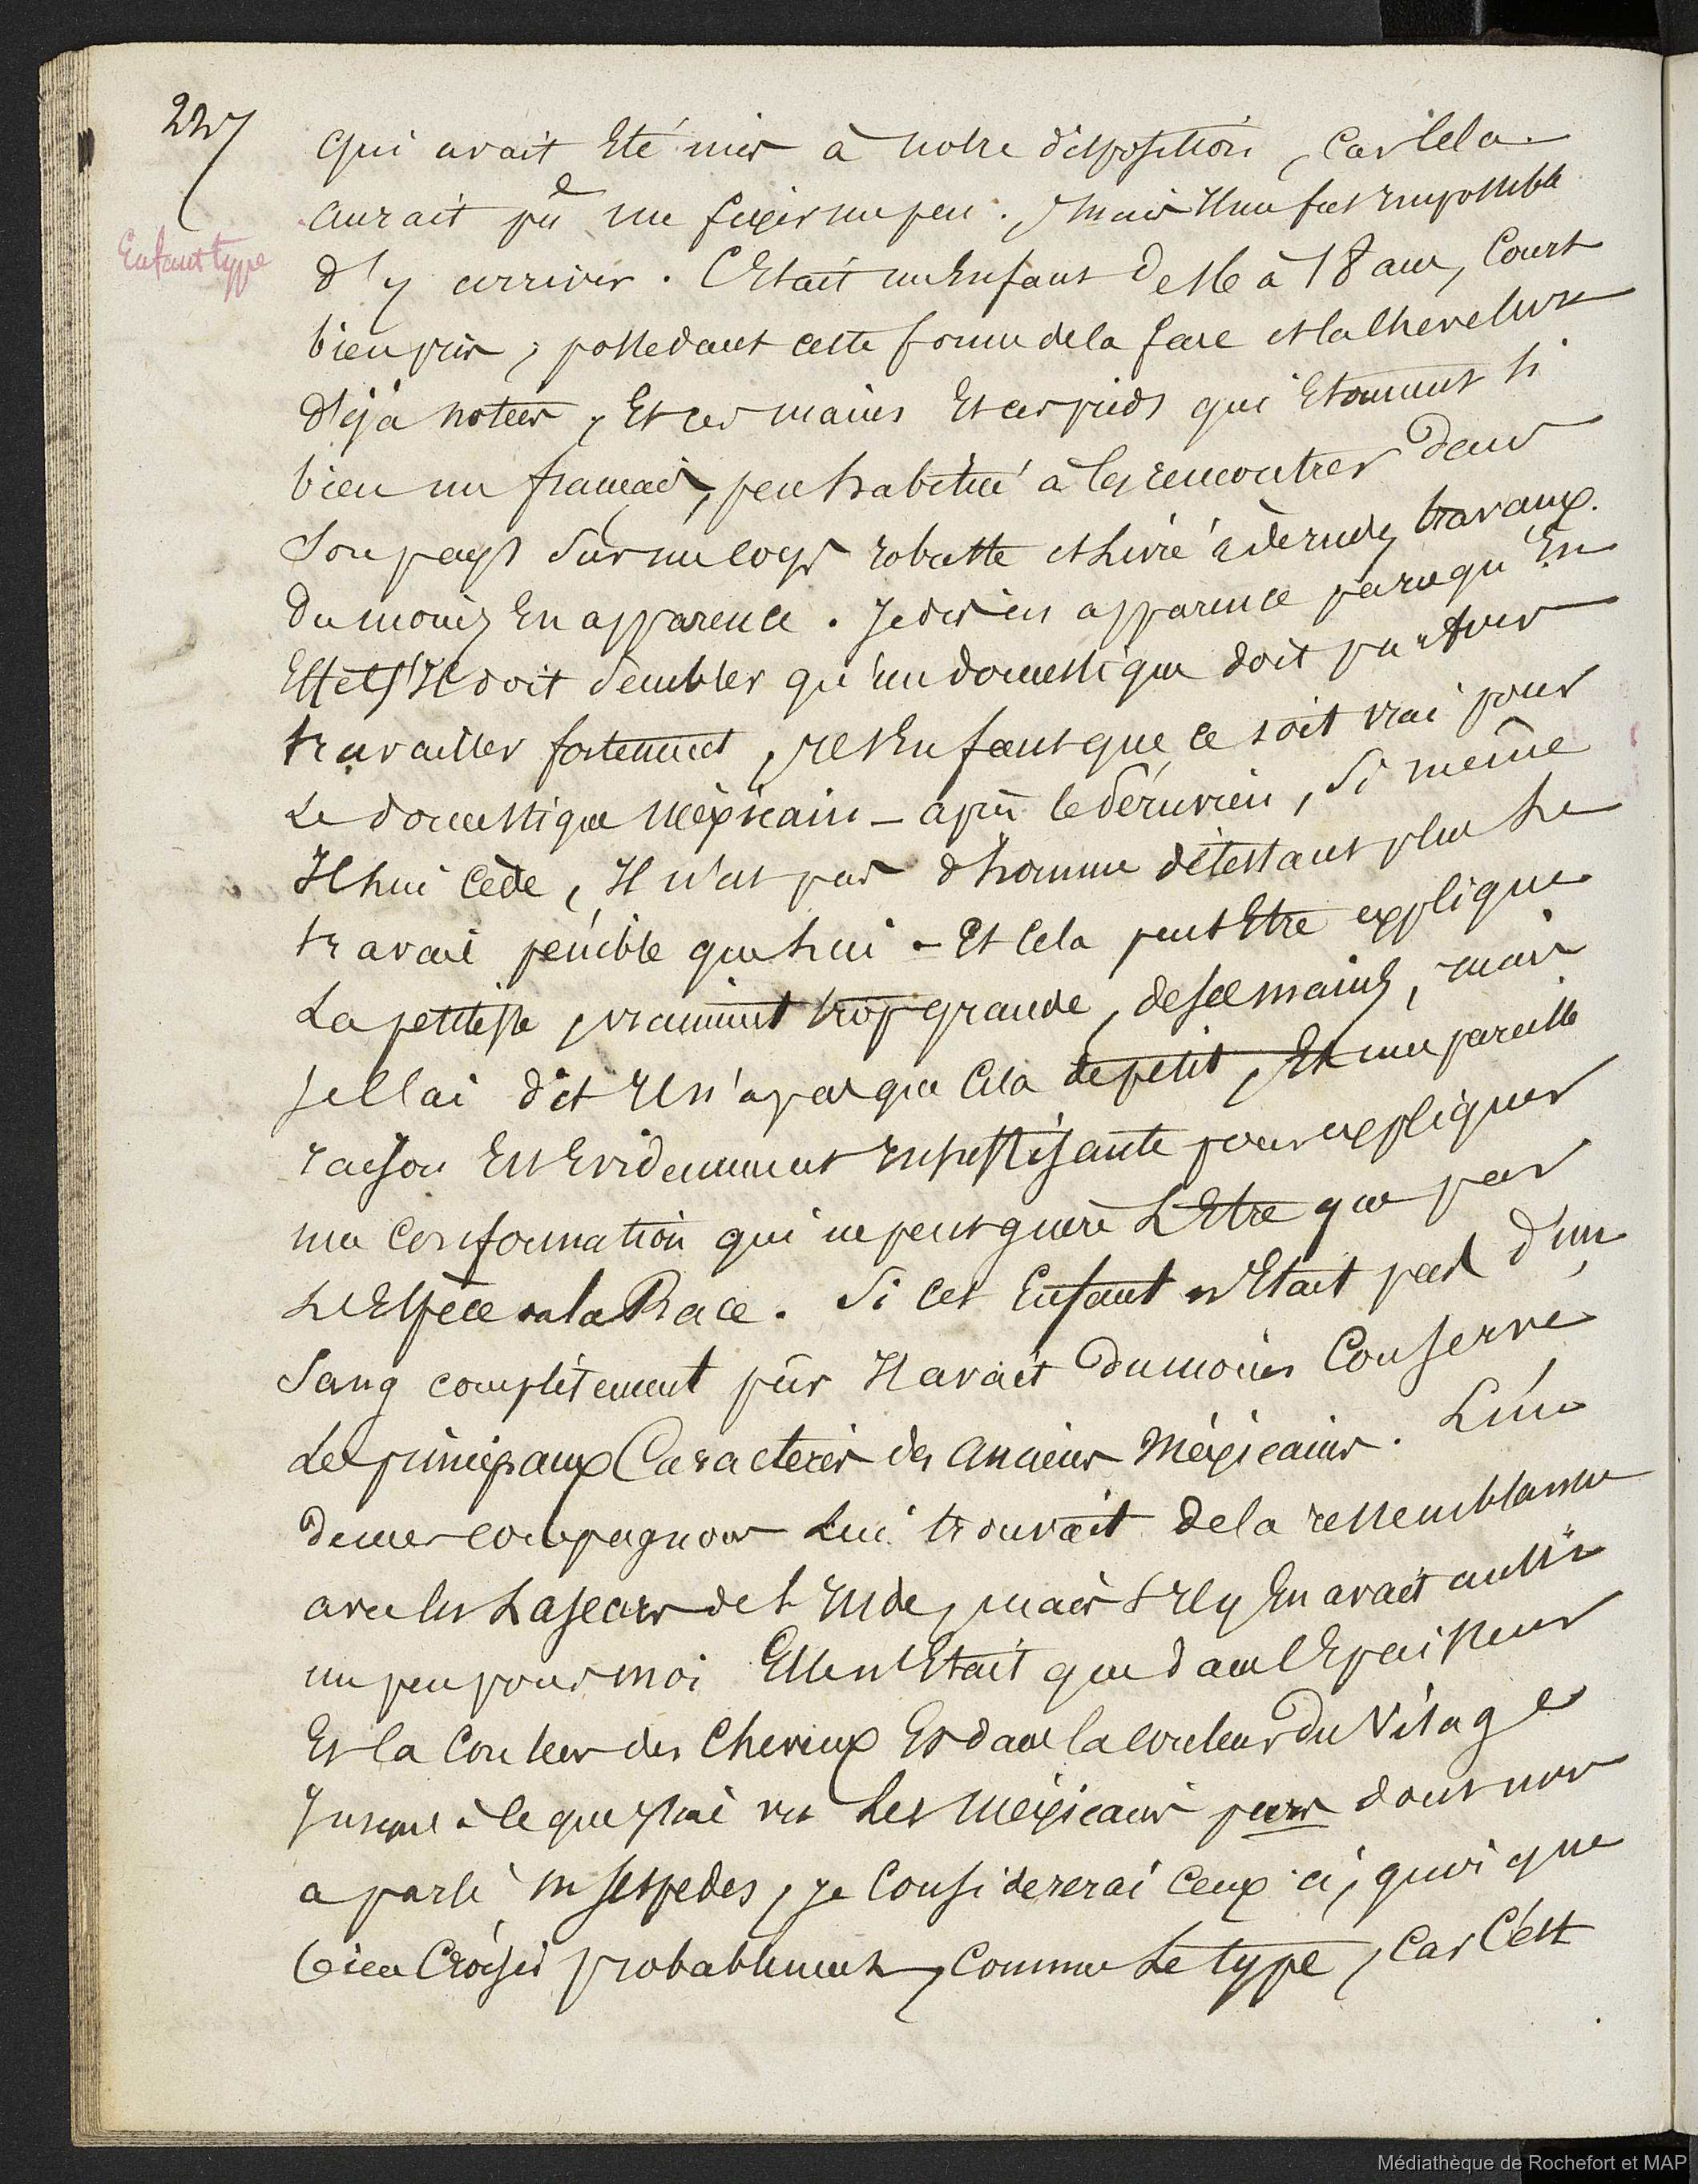 227
Enfant type
qui avait Eté mis à notre disposition, car cela
aurait pu me fixer un peu. Mais Il me fut Impossible
d'y arriver. C'Etait un Enfant de 16 à 18 ans, Court
bien pris, possedant cette forme de la face et la chevelure
déjà notées, Et ces mains Et ces pieds qui Etonnent si
bien un français, peu habitué à les rencontrer dans
Son pays Sur un corps robuste et livré à de rudes travaux.
Du moins En apparence. Je dis en apparence parce qu'En
Effet s'Il doit sembler qu'un domestique doit partout
travailler fortement, Il s'En faut que ce soit vrai pour
Le domestique Mexicain – après le Péruvien, Si même
Il lui cède, Il n'est pas d'homme détestant plus Le
travail pénible que Lui – Et Cela peut Etre explique
La petitesse, vraiment trop grande, de ses mains, mais
Je l'ai dit Il n'a pas que Cela de petit, Et une pareille
raison Est Evidemment Insuffisante pour expliquer
une Conformation qui ne peut guère L'Etre que par
L'Espèce ou la Race. Si Cet Enfant n'Etait pas d'un
Sang complètement pur Il avait Du moins Conservé
Les principaux Caractères des anciens Méxicains. L'un
de mes compagnons Lui trouvait de la ressemblance
avec les Lascars de l'Inde, mais s'Il y En avait aussi
un peu pour moi Elle n'Etait que dans l'Epaisseur
Et la Couleur des Cheveux Et dans la couleur Du Visage
Jusqu'à ce que j'aie vu Les Méxicains purs dont nous
a parlé Mr Sespedes, je Considererai Ceux ci, quoique
bien Croisés probablement, Comme Le type, Car C'est
Médiathèque de Rochefort et MAP